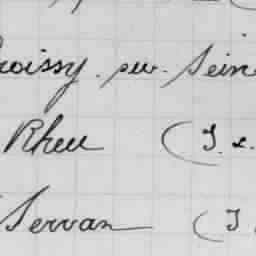 roissy. sur. Sein
Rheu (I. &.
Servan (I